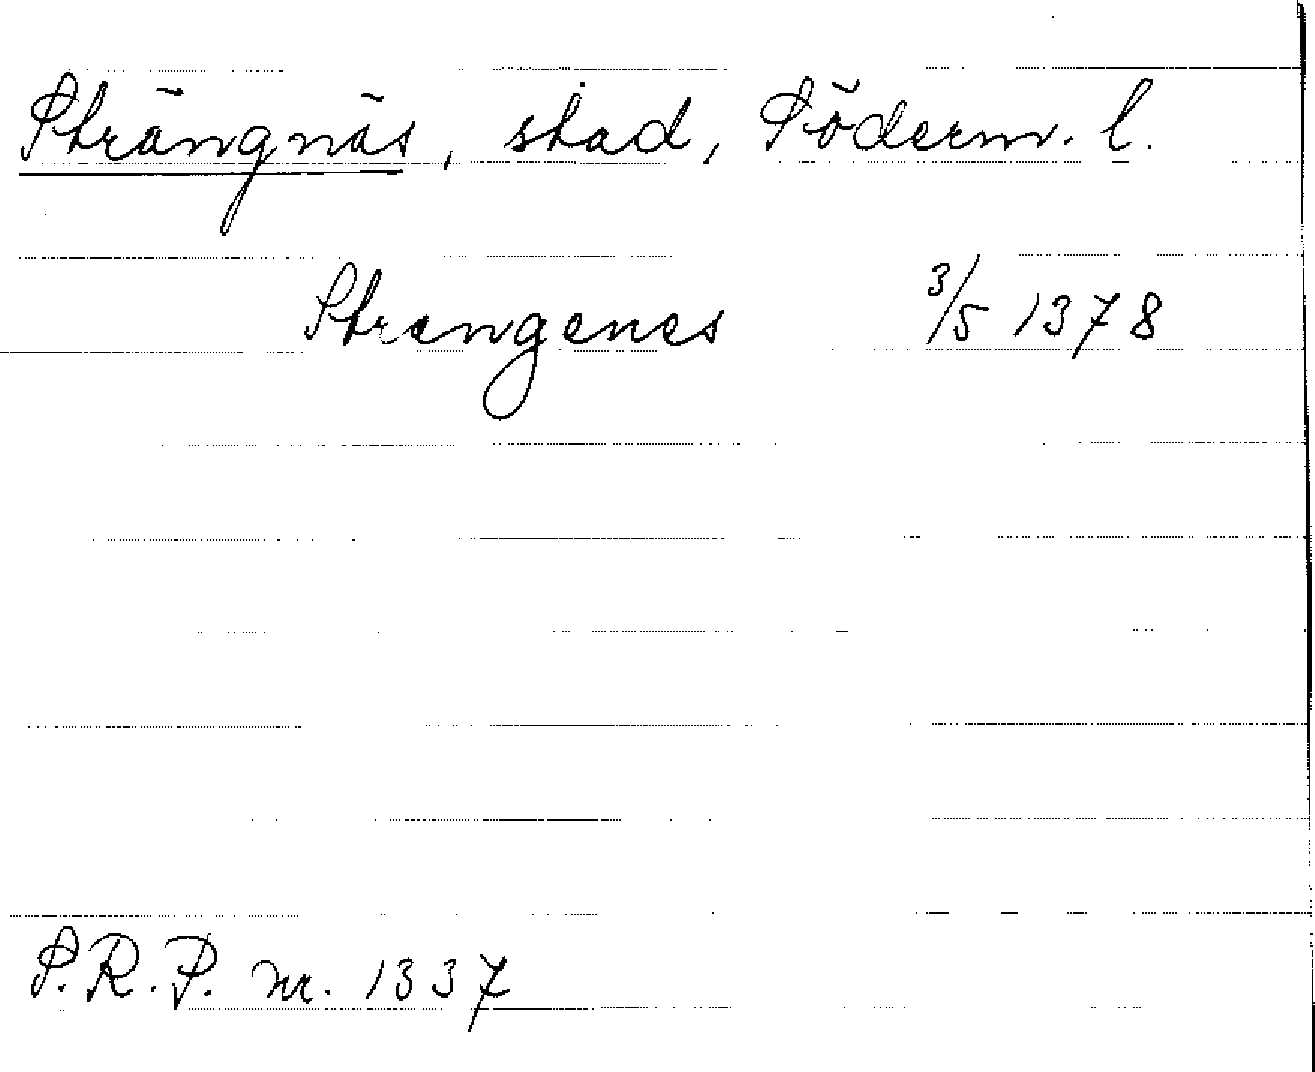 Strängnäs, stad, Söderm. l.
Strengenes 3/5 1378
S.R.P. nr. 1337